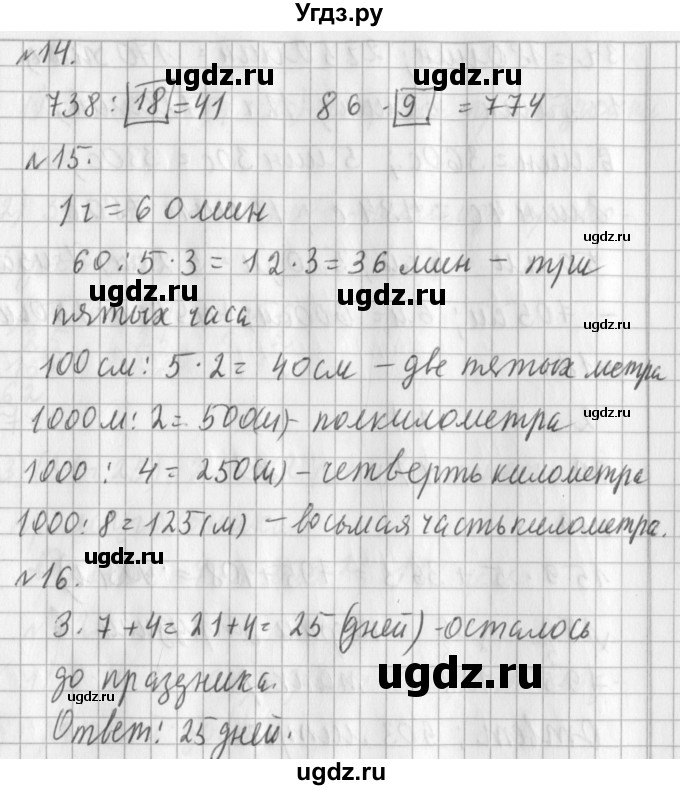 Угдз.ру
№14.
ugdz.ru ugdz.ru
738 : 18 = 41 86 · 9 = 774
№15.
1 г = 60 мин
ugdz.ru
60 : 5 · 3 = 12 · 3 = 36 мин – три
ugdz.ru ugdz.ru
пятых часа
ugdz.ru
100 см : 5 · 2 = 40 см – две пятых метра
1000 м : 2 = 500(м) – полкилометра
ugdz.ru
1000 : 4 = 250(м) – четверть километра
1000 : 8 = 125(м) – восьмая часть километра.
ugdz.ru
№16.
3 · 7 + 4 = 21 + 4 = 25 (дней) – осталось
ugdz.ru
до праздника.
ugdz.ru
Ответ: 25 дней.
ugdz.ru